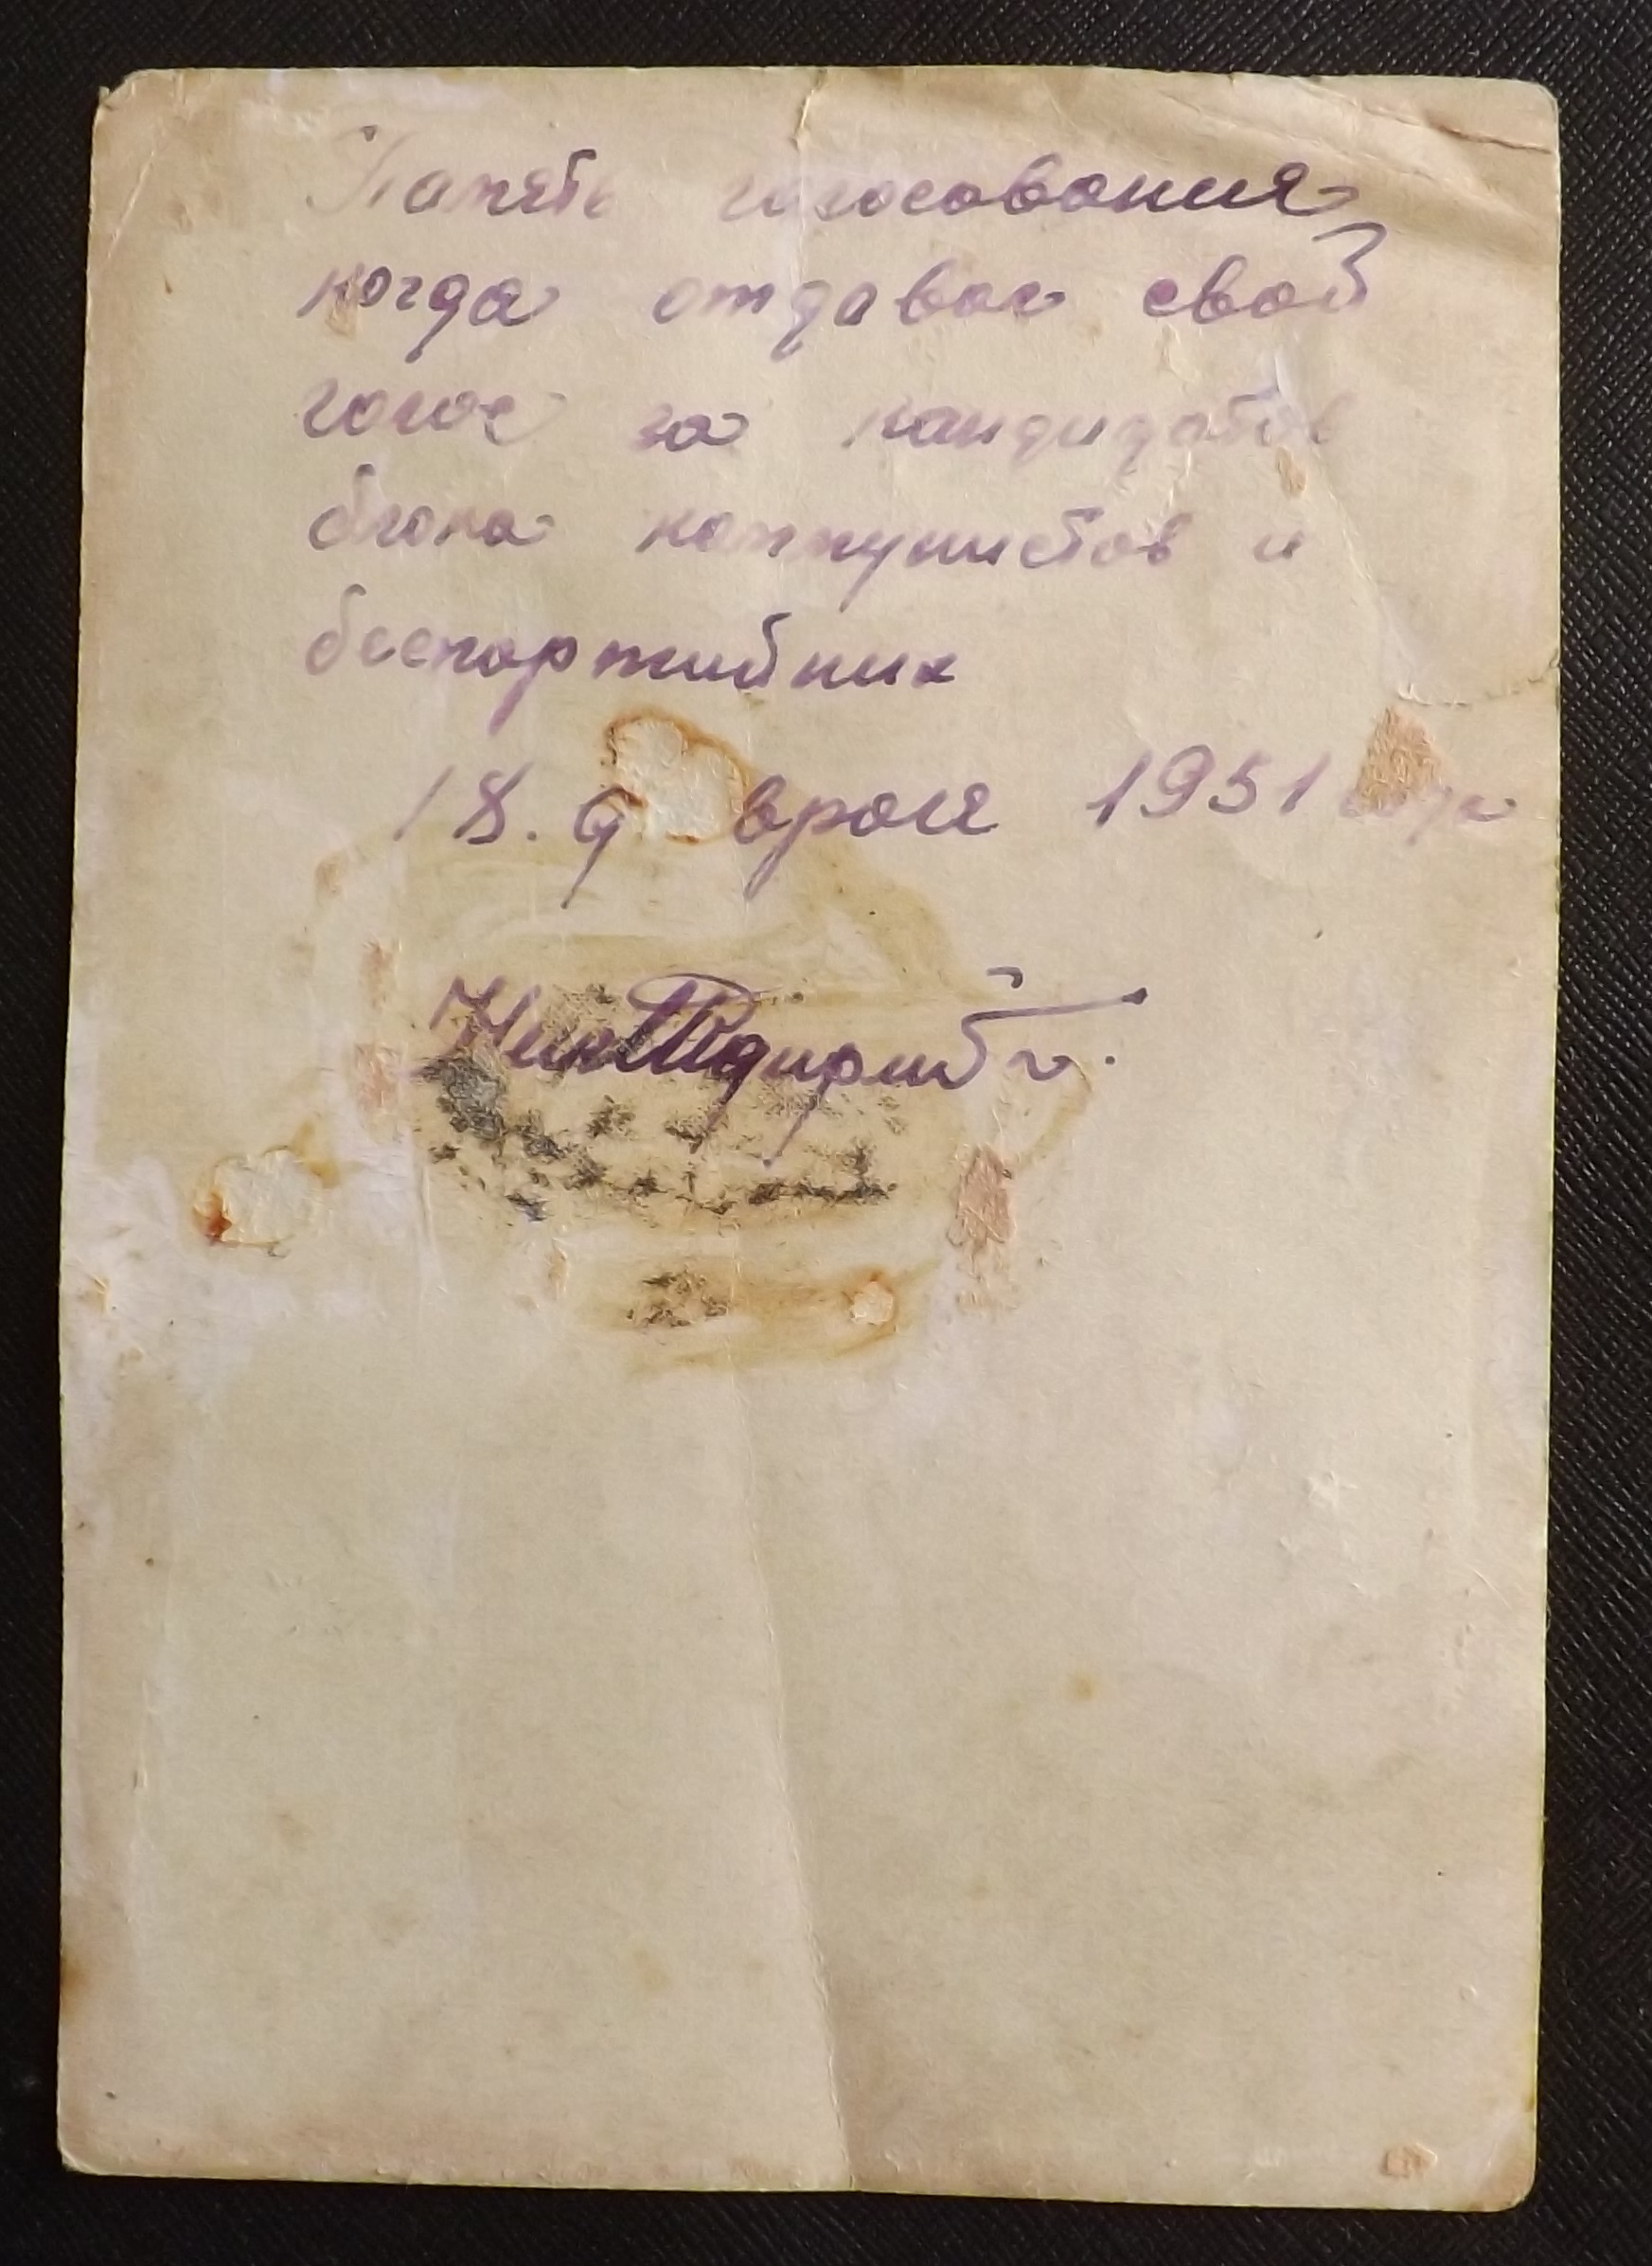 Память голосования
когда отдавал свой
голос за кандидатов
блока коммунистов и
беспартийних
18. ф враля 1951 года